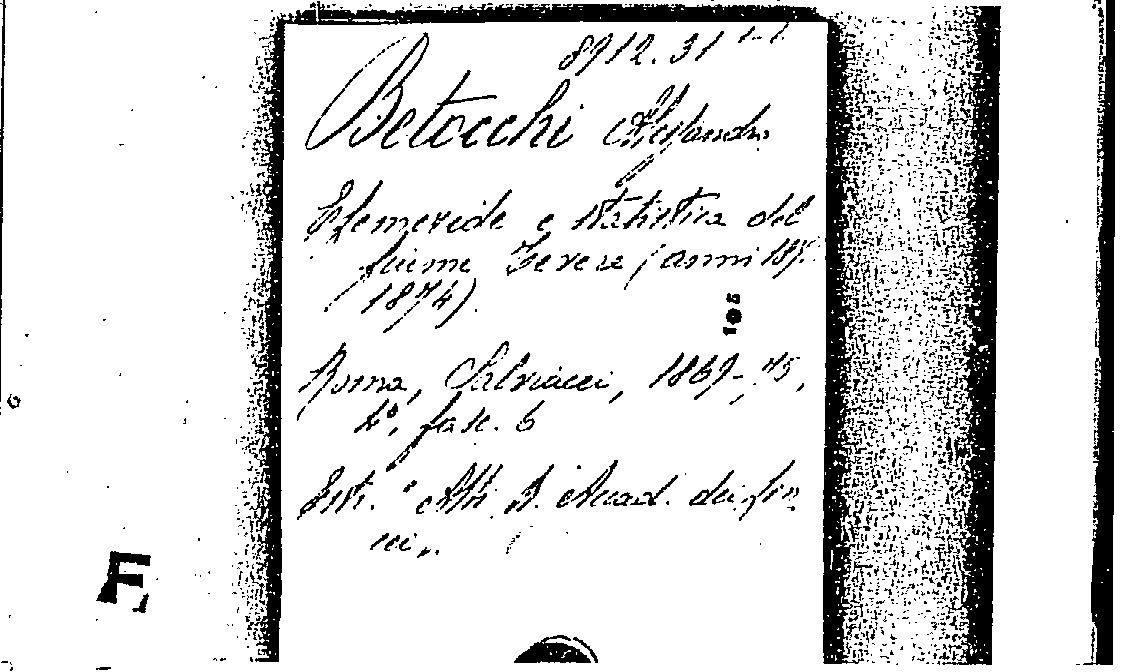 8912.31
Betocchi Alessandro
Efemeride e statistica del
fiume Tevere (anni
1874).
Roma, Salviucci, 1869-75,
4°, fasc. 6
Estr. "Atti R. Accad. dei Lin
cei".
105
F